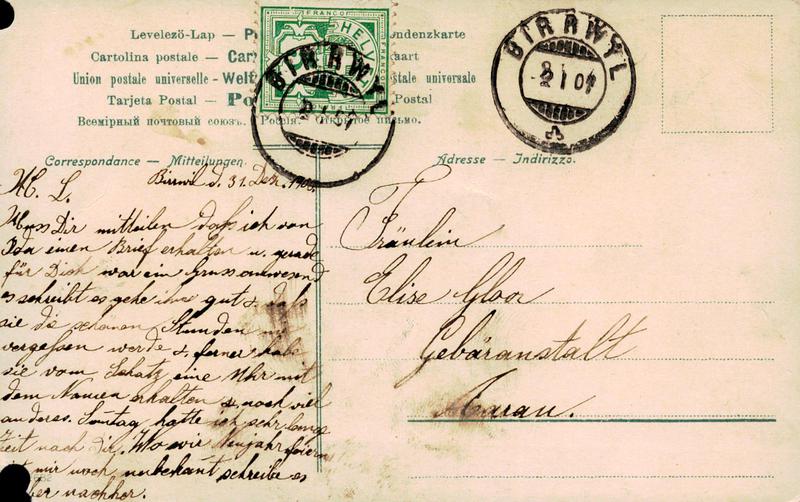 Levelezö-Lap — P
ondenzkarte
Cartolina postale — Car
kaart
Union postale universelle - Welt
stale universale
Tarjeta Postal — Po
Postal
Всемірный почтовый союзъ. Россія. Открытое письмо.
FRANCO
HELV
FRANCO
BIRRWYL
2 I 07
BIRRWYL
2 I 07
Correspondance — Mitteilungen.
Adresse — Indirizzo.
Birrwil d. 31. Dez. 190
M. L.
Muss Dir mitteilen dass ich von
Ida einen Brief erhalten u. gerade
für Dich war ein Gruss anwesend
es schreibt es gehe ihm gut & dass
sie die schönen Stunden nie
vergessen werde & ferner habe
sie vom Schatz eine Uhr mit
dem Namen erhalten & noch viel
anderes. Sontag hatte ich sehr lange
Zeit nach Dir. Wo wir Neujahr feiern
ist mir noch unbekant schreibe es
aber nachher.
Fräulein
Elise Gloor
Gebäranstalt
Aarau.